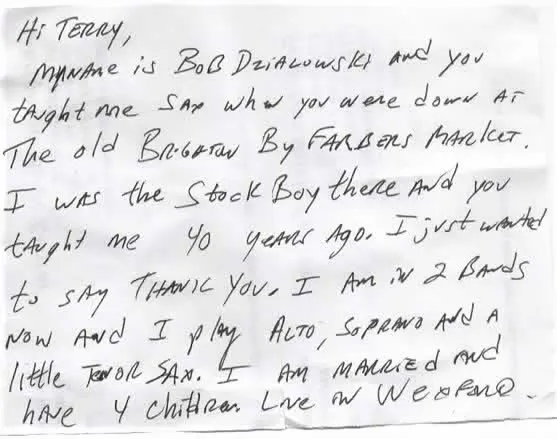 Hi TERRY,
MY NAME is BOB DZIALOWSKI and you
taught me SAX when you were down AT
The old BRIGHTON By FARBERS MARKET.
I was the Stock Boy there AND you
taught me 40 years Ago. I just wanted
to SAY THANK YOU. I AM in 2 BANDS
NOW AND I play ALTO, SOPRANO AND A
little TENOR SAX. I AM MARRIED AND
have 4 children. Live in WEXFORD.